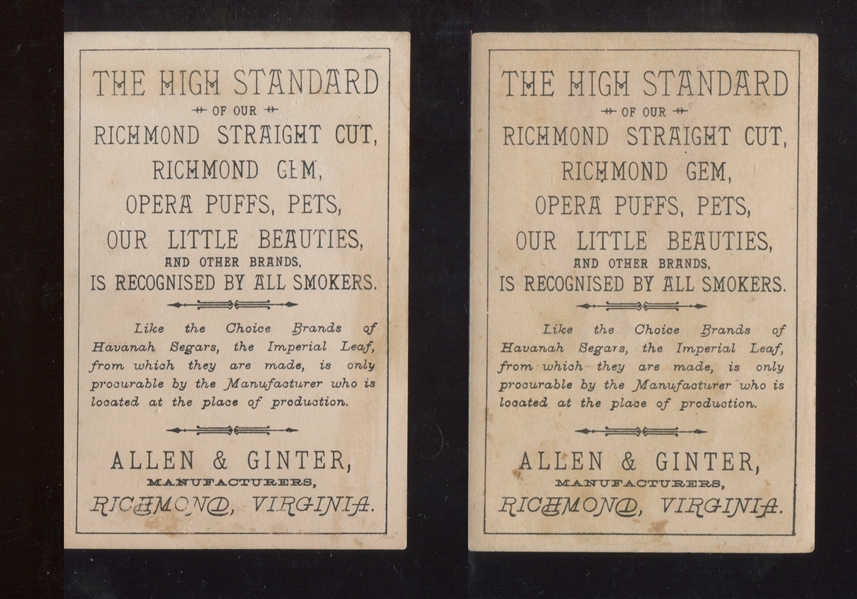 THE HIGH STANDARD
OF OUR
RICHMOND STRAIGHT CUT,
RICHMOND GEM,
OPERA PUFFS, PETS,
OUR LITTLE BEAUTIES,
AND OTHER BRANDS,
IS RECOGNISED BY ALL SMOKERS.
Like the Choice Brands of
Havanah Segars, the Imperial Leaf,
from which they are made, is only
procurable by the Manufacturer who is
located at the place of production.
ALLEN & GINTER,
MANUFACTURERS,
RICHMOND, VIRGINIA.
THE HIGH STANDARD
OF OUR
RICHMOND STRAIGHT CUT,
RICHMOND GEM,
OPERA PUFFS, PETS,
OUR LITTLE BEAUTIES,
AND OTHER BRANDS,
IS RECOGNISED BY ALL SMOKERS.
Like the Choice Brands of
Havanah Segars, the Imperial Leaf,
from which they are made, is only
procurable by the Manufacturer who is
located at the place of production.
ALLEN & GINTER,
MANUFACTURERS,
RICHMOND, VIRGINIA.